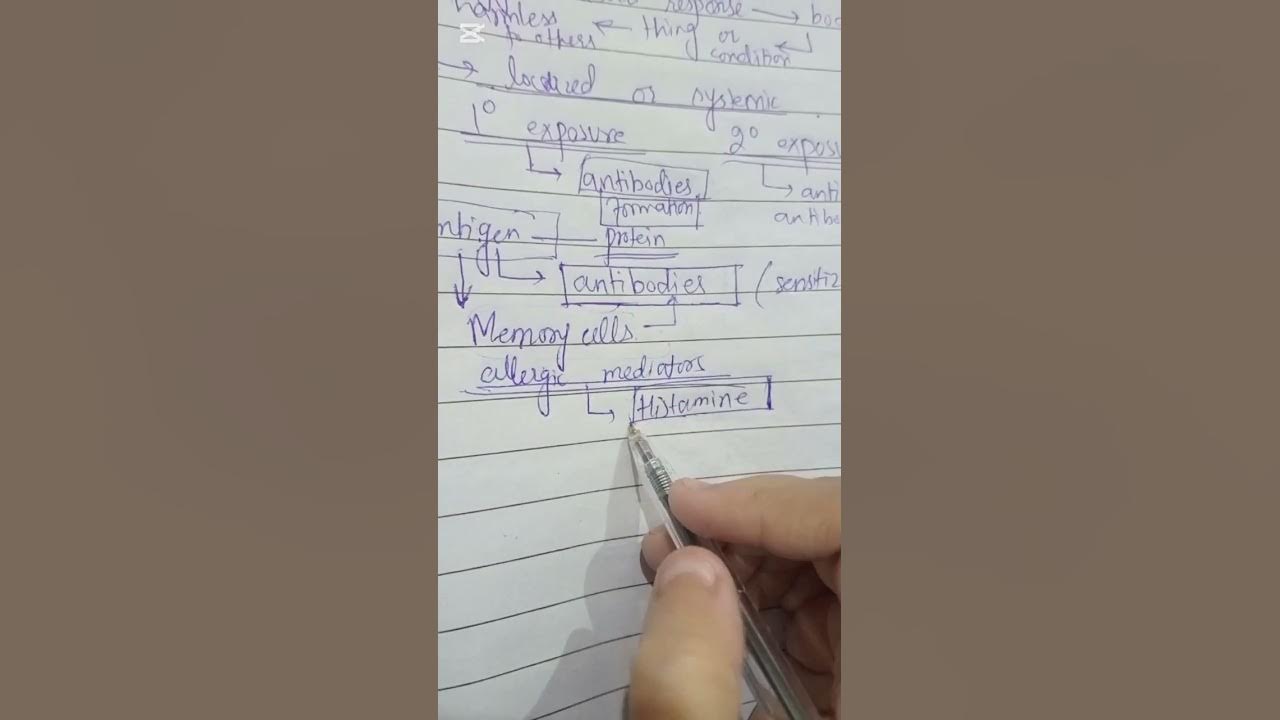 response → bod
harmless ← thing or
to others condition
→ localized or systemic
1° exposure 2° exposu
antibodies → anti
formation antibo
ntigen — protein
antibodies (sensitiz
Memory cells
allergic mediators
Histamine